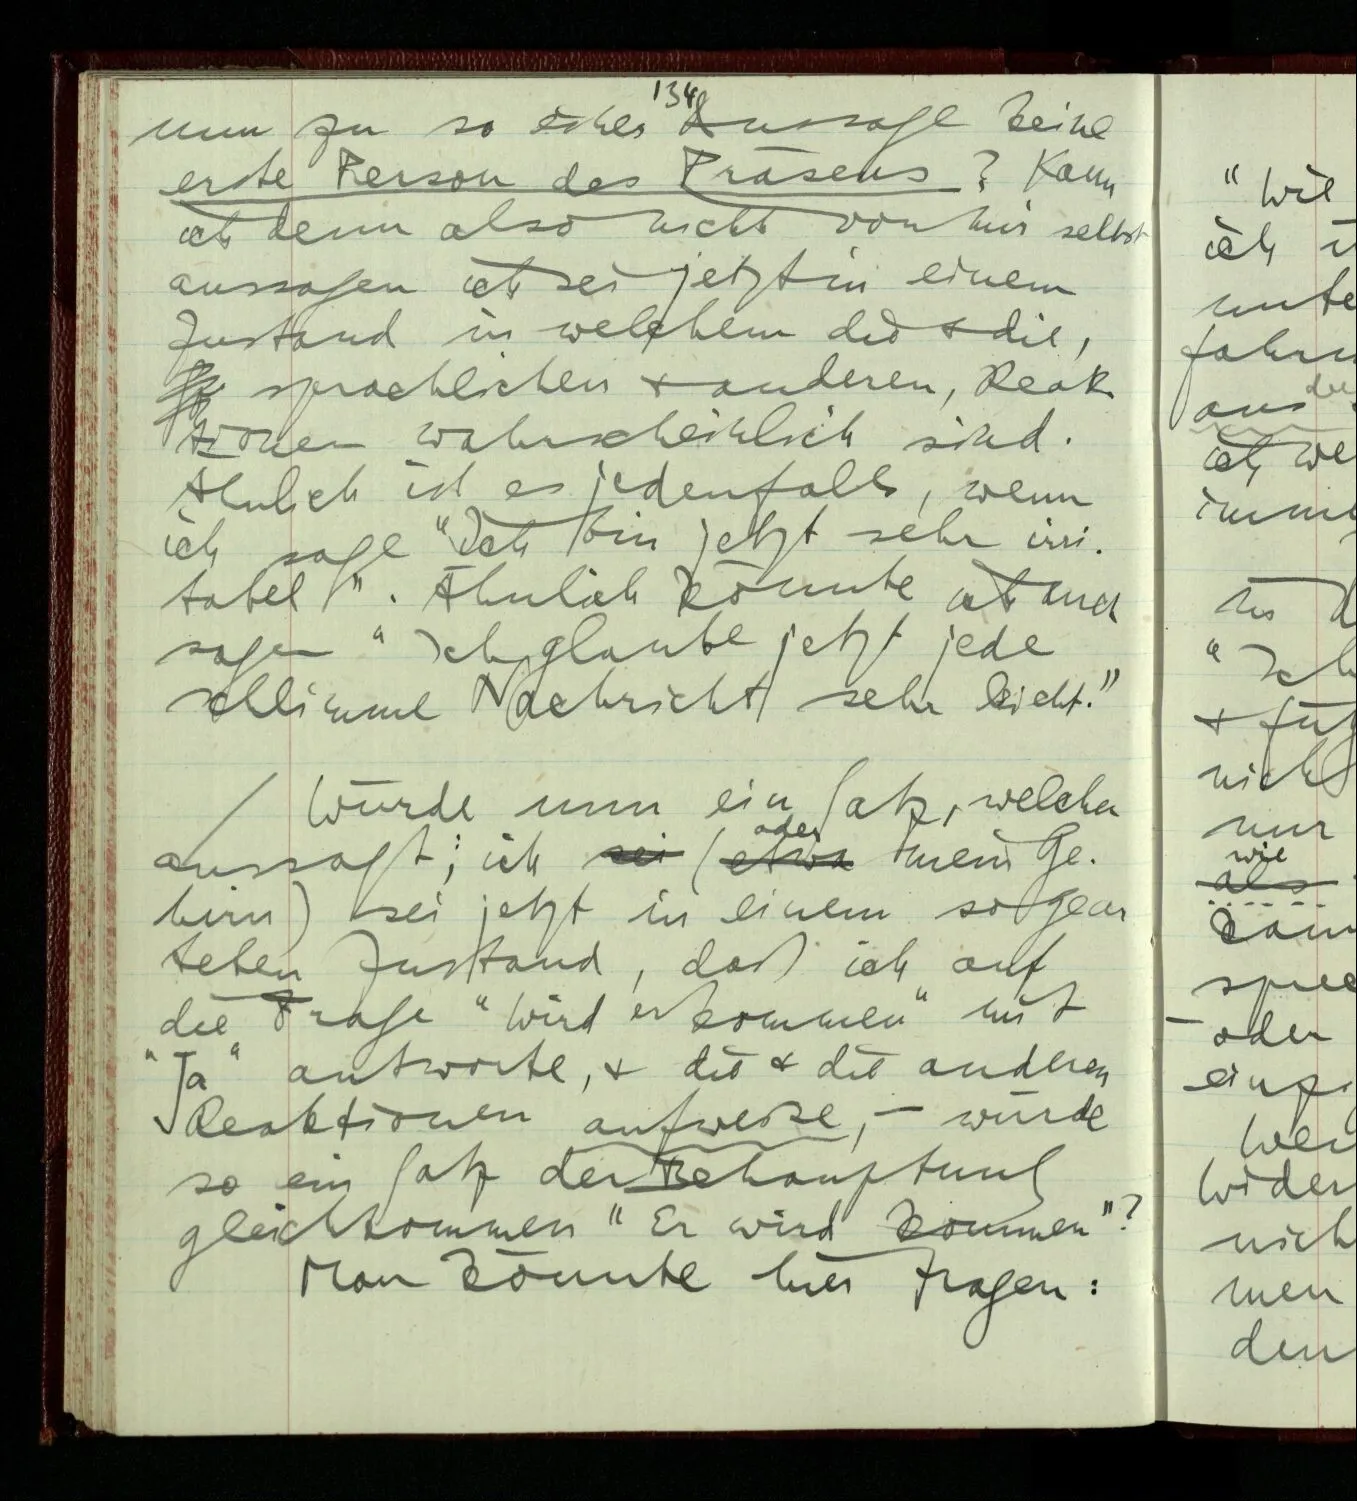 134
nun zu so einer Aussage keine
erste Person des Präsens? Kann
ich denn also nicht von mir selbst
aussagen ich sei jetzt in einem
Zustand in welchem die & die,
sprachlichen & anderen, Reak-
tionen wahrscheinlich sind.
Ähnlich ist es jedenfalls, wenn
ich sage "Ich bin jetzt sehr irri-
tabel". Ähnlich könnte ich auch
sagen "Ich glaube jetzt jede
schlimme Nachricht sehr leicht."
/ Würde nun ein Satz, welcher
oder
aussagt; ich sei (etwa mein Ge-
hirn) sei jetzt in einem so gear-
teten Zustand, daß ich auf
die Frage "Wird er kommen" mit
"Ja" antworte, & die & die anderen
Reaktionen aufweise, – würde
so ein Satz der Behauptung
gleichkommen "Er wird kommen"?
Man könnte hier fragen:
"Wie
ich
unte
fahru
aus
ich we
imme
"Ich
& füg
nich
nur
wie
als
kann
spre
– oder
einpr
Wer
Wider
nich
men
den